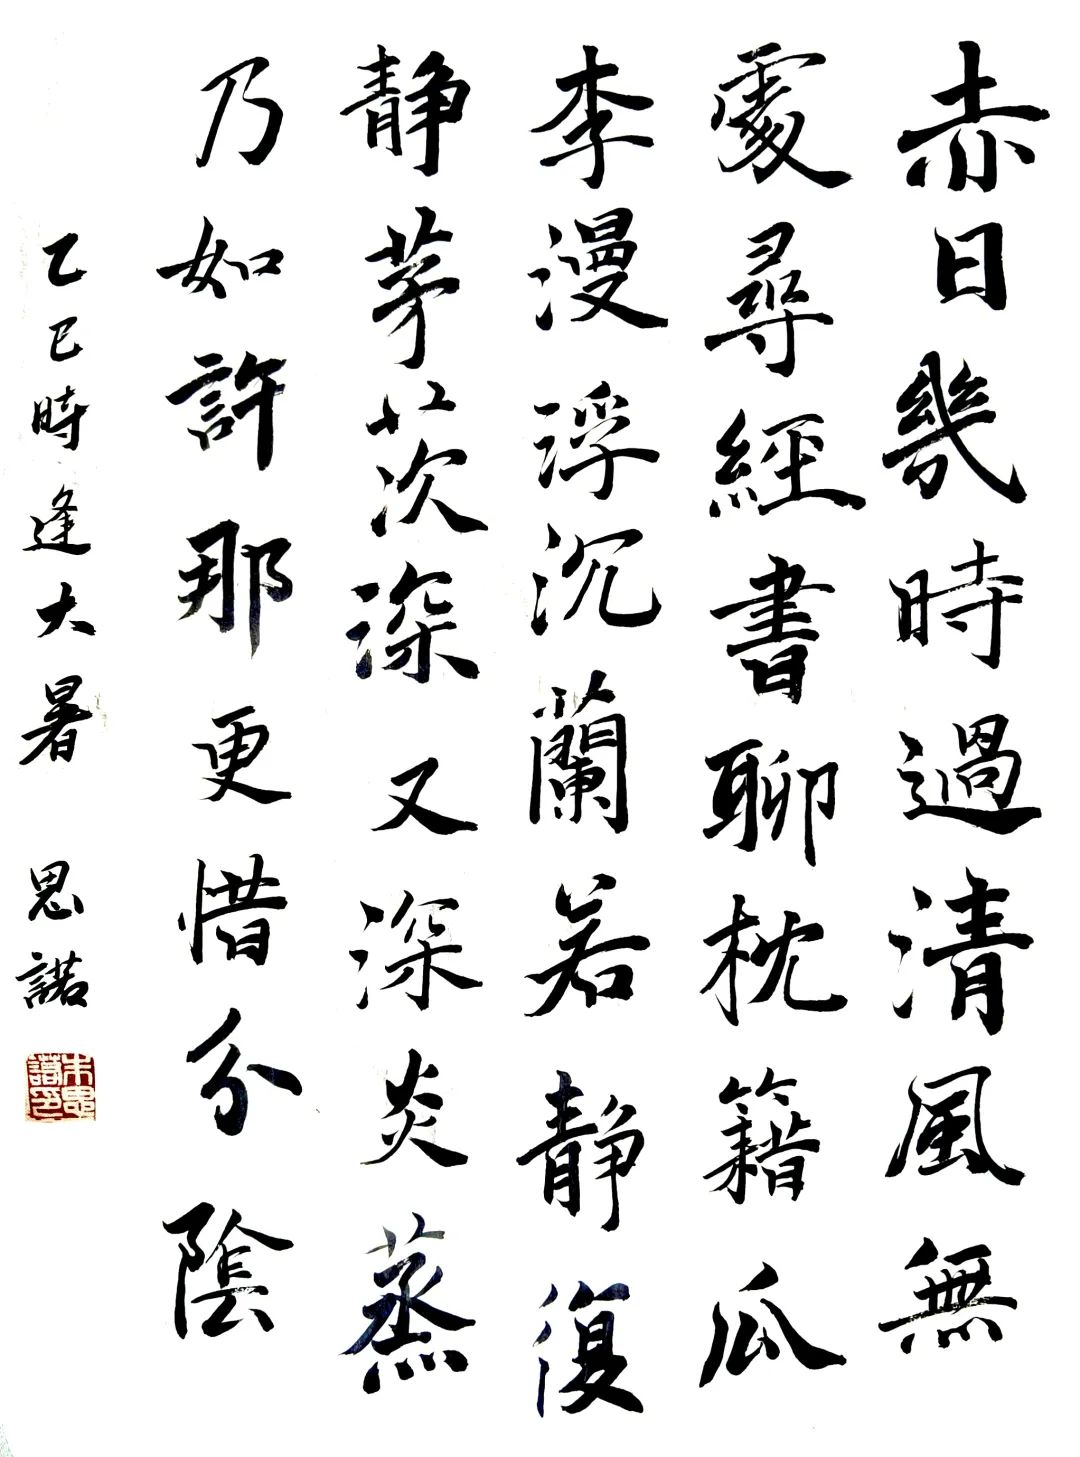 赤日幾時過清風無
處尋經書聊枕籍瓜
李漫浮沉蘭若静復
静茅茨深又深炎蒸
乃如許那更惜分陰
乙巳時逢大暑 思諾